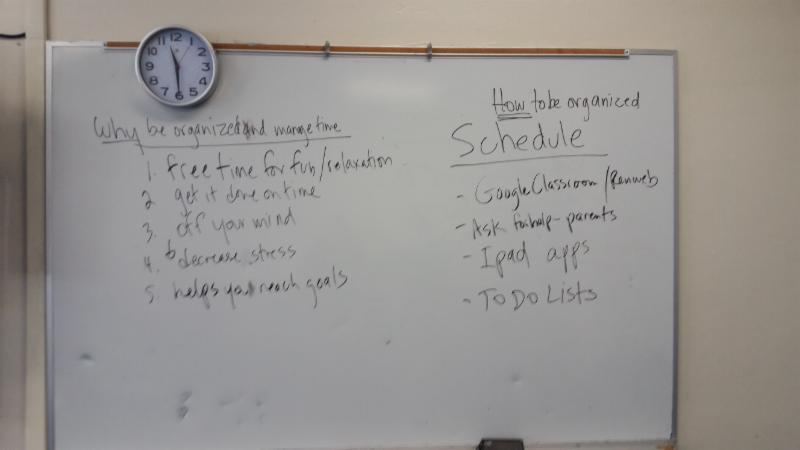 12
1
2
3
4
5
6
7
8
9
10
11
Why be organized and manage time
1. free time for fun/relaxation
2 get it done on time
3. off your mind
4. decrease stress
5. helps you reach goals
How to be organized
Schedule
- Google Classroom/Renweb
- Ask for help - parents
- Ipad apps
- TO DO Lists